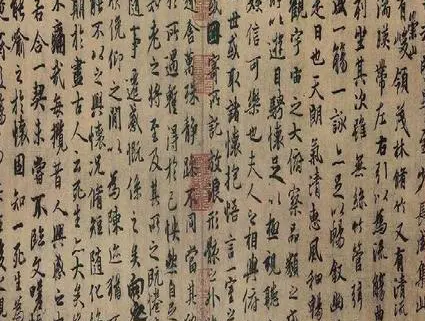 至少長咸集
崇山
有峻領茂林脩竹又有清流
湍暎帶左右引以為流觴曲
列坐其次雖無絲竹管弦
盛一觴一詠亦足以暢敘幽
是日也天朗氣清惠風和暢
觀宇宙之大俯察品類之
所以遊目騁懷足以極視聽
娛信可樂也夫人之相與俯
世或取諸懷抱悟言一室之
或因寄所託放浪形骸之外
趣舍萬殊靜躁不同當其
於所遇蹔得於己怏然自
知老之將至及其所之既惓
事遷感慨係之矣向之
欣俛仰之間以為陳迹猶
能不以之興懷況脩短隨化
期於盡古人云死生亦大矣
不痛哉每攬昔人興感之由
若合一契未嘗不臨文嗟
之於懷固知一死生為